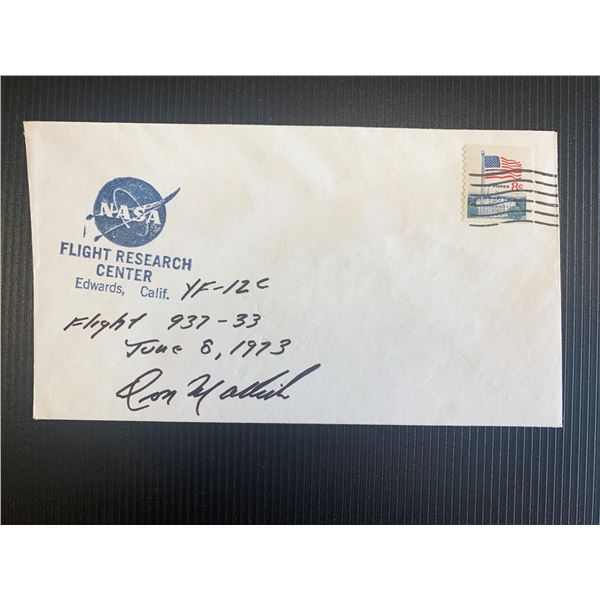 NASA
FLIGHT RESEARCH
CENTER
Edwards, Calif. YF-12C
Flight 937-33
June 8, 1973
Don Mallick
8c